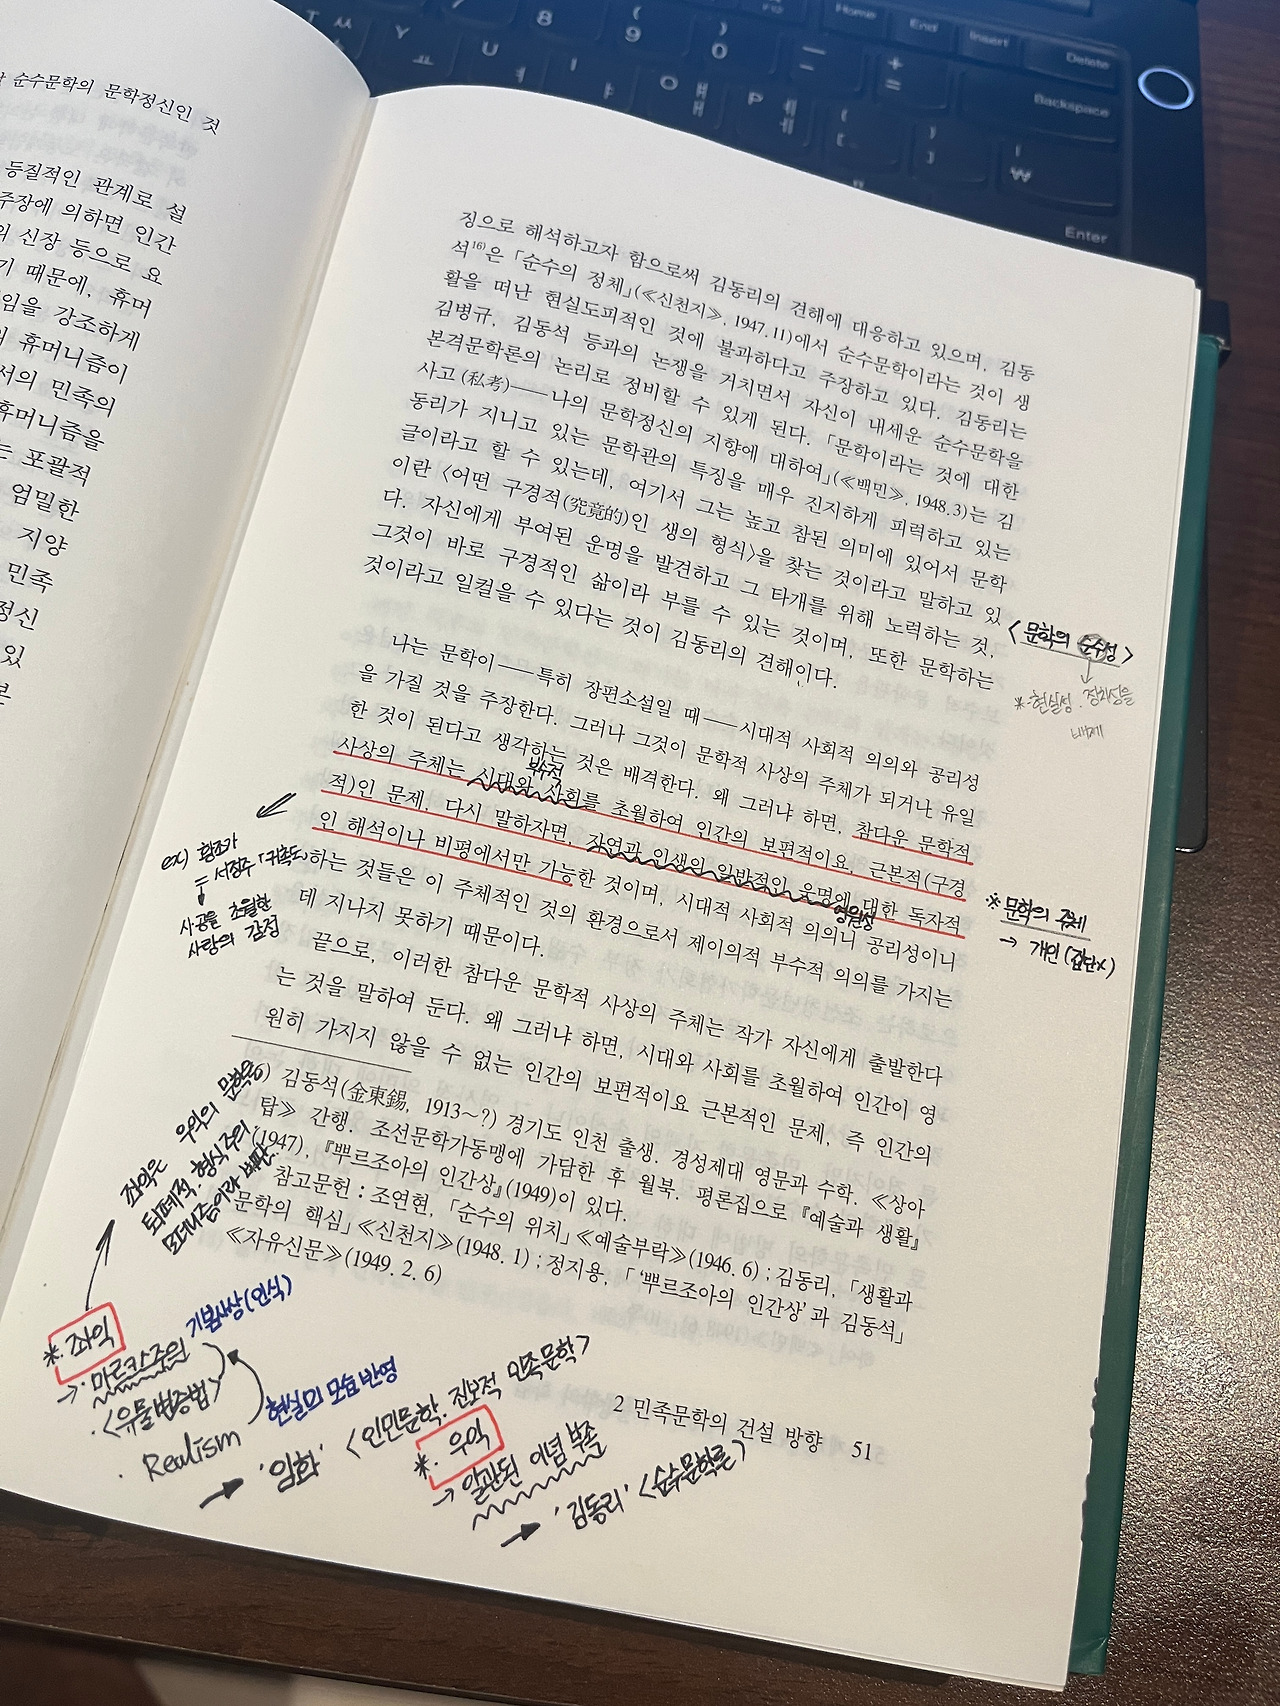 순수문학의 문학정신인 것
등질적인 관계로 설
주장에 의하면 인간
신장 등으로 요
때문에, 휴머
임을 강조하게
휴머니즘이
서의 민족의
휴머니즘을
포괄적
엄밀한
지양
민족
정신
있
징으로 해석하고자 함으로써 김동리의 견해에 대응하고 있으며, 김동
석16)은 「순수의 정체」(≪신천지≫, 1947.11)에서 순수문학이라는 것이 생
활을 떠난 현실도피적인 것에 불과하다고 주장하고 있다. 김동리는
김병규, 김동석 등과의 논쟁을 거치면서 자신이 내세운 순수문학을
본격문학론의 논리로 정비할 수 있게 된다. 「문학이라는 것에 대한
사고(私考)——나의 문학정신의 지향에 대하여」(≪백민≫, 1948.3)는 김
동리가 지니고 있는 문학관의 특징을 매우 진지하게 피력하고 있는
글이라고 할 수 있는데, 여기서 그는 높고 참된 의미에 있어서 문학
이란 〈어떤 구경적(究竟的)인 생의 형식〉을 찾는 것이라고 말하고 있
다. 자신에게 부여된 운명을 발견하고 그 타개를 위해 노력하는 것,
그것이 바로 구경적인 삶이라 부를 수 있는 것이며, 또한 문학하는
것이라고 일컬을 수 있다는 것이 김동리의 견해이다.
<문학의 순수성>
※ 현실성. 정치성을
배제
나는 문학이——특히 장편소설일 때——시대적 사회적 의의와 공리성
을 가질 것을 주장한다. 그러나 그것이 문학적 사상의 주체가 되거나 유일
한 것이 된다고 생각하는 것은 배격한다. 왜 그러냐 하면, 참다운 문학적
부수적
사상의 주체는 시대와 사회를 초월하여 인간의 보편적이요, 근본적(구경
적)인 문제, 다시 말하자면, 자연과 인생의 일반적인 운명에 대한 독자적
영원성
인 해석이나 비평에서만 가능한 것이며, 시대적 사회적 의의니 공리성이니
하는 것들은 이 주체적인 것의 환경으로서 제이의적 부수적 의의를 가지는
데 지나지 못하기 때문이다.
끝으로, 이러한 참다운 문학적 사상의 주체는 작가 자신에게 출발한다
는 것을 말하여 둔다. 왜 그러냐 하면, 시대와 사회를 초월하여 인간이 영
원히 가지지 않을 수 없는 인간의 보편적이요 근본적인 문제, 즉 인간의
※ 문학의 주체
→ 개인 (집단x)
ex) 황조가
= 서정주 「귀촉도」
시공을 초월한
사랑의 감정
16) 김동석(金東錫, 1913~?) 경기도 인천 출생. 경성제대 영문과 수학. ≪상아
탑≫ 간행. 조선문학가동맹에 가담한 후 월북. 평론집으로 『예술과 생활』
(1947), 『뿌르조아의 인간상』(1949)이 있다.
참고문헌 : 조연현, 「순수의 위치」 ≪예술부락≫(1946. 6) ; 김동리, 「생활과
문학의 핵심」 ≪신천지≫(1948. 1) ; 정지용, 「'뿌르조아의 인간상'과 김동석」
≪자유신문≫(1949. 2. 6)
좌익은 우익의 문학을
퇴폐적. 형식주의
모더니즘이라 비판.
※. 좌익
→. 마르크스주의 기본사상(인식)
. <유물변증법>
. Realism 현실의 모습 반영
→ '임화' <인민문학. 진보적 민족문학>
※. 우익
→ 일관된 이념 부족
→ '김동리' <순수문학론>
2 민족문학의 건설 방향 51